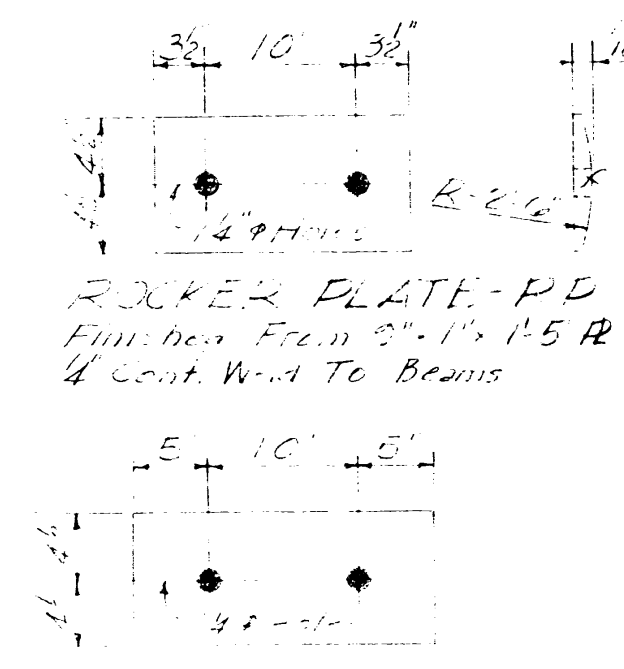 3½ 10" 3½"
4½
4½
1¼" φ Holes
R-2'-6"
ROCKER PLATE-RP
Finished From 9" x 1" x 1'-5 PL
¼" Cont. Weld To Beams
5 10" 5"
4½
4½